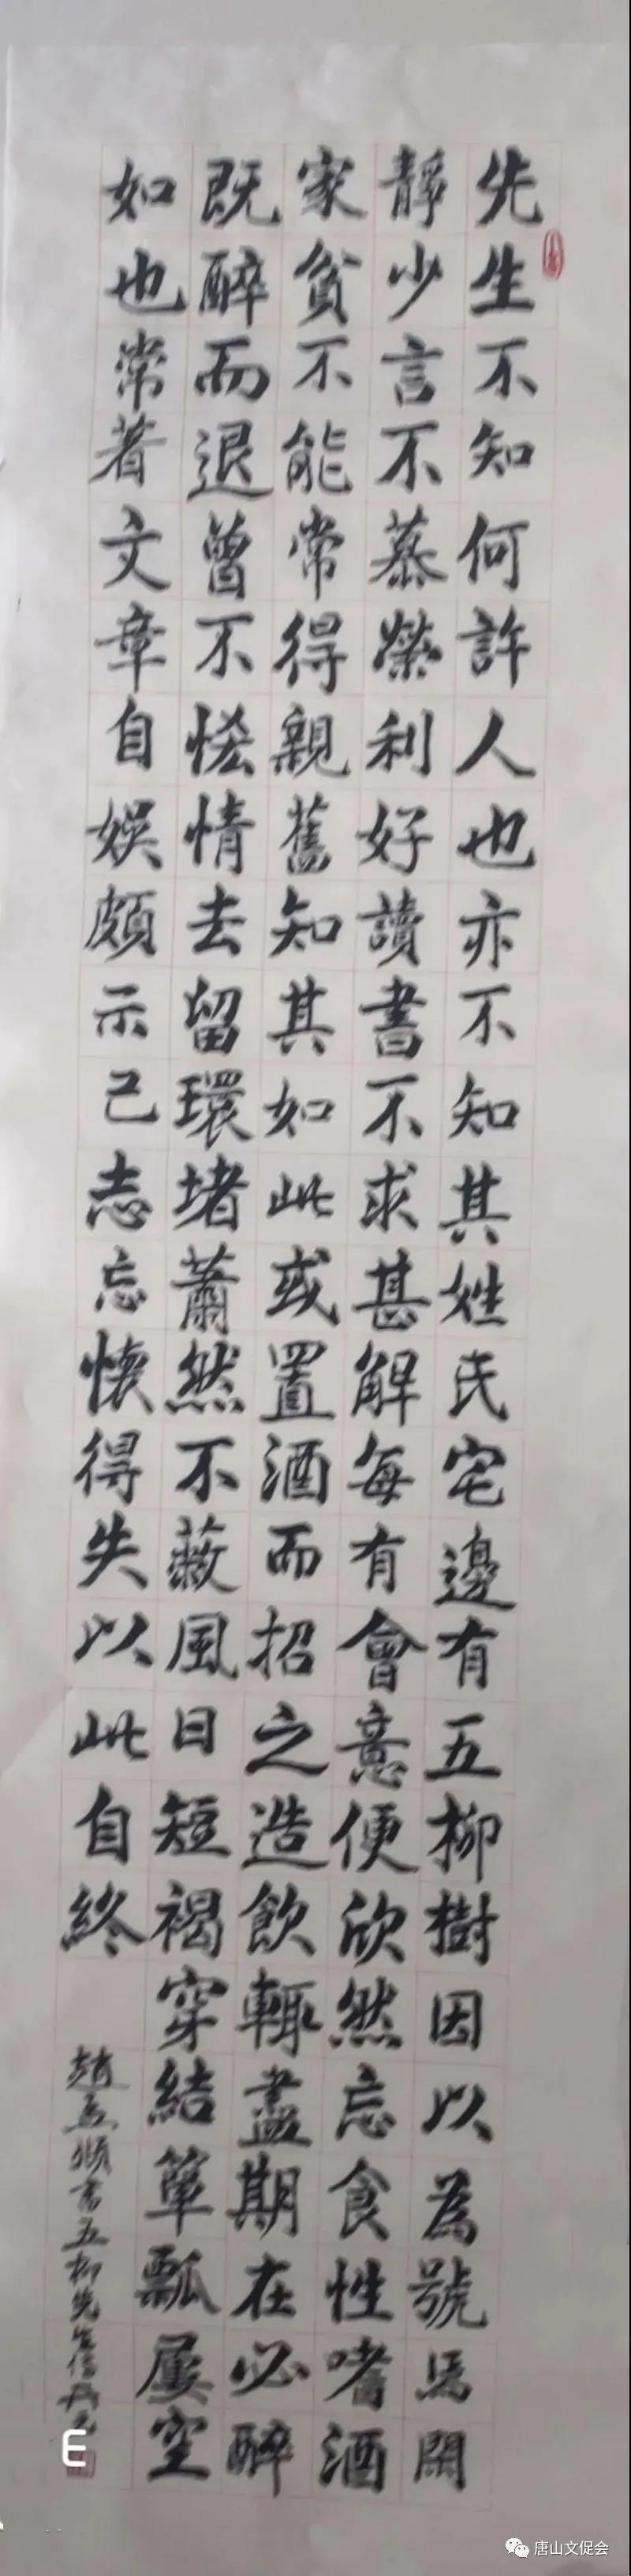 先生不知何許人也亦不知其姓氏宅邊有五柳樹因以為號焉閑
靜少言不慕榮利好讀書不求甚解每有會意便欣然忘食性嗜酒
家貧不能常得親舊知其如此或置酒而招之造飲輒盡期在必醉
既醉而退曾不恡情去留環堵蕭然不蔽風日短褐穿結簞瓢屢空
如也常著文章自娛頗示己志忘懷得失以此自終
趙孟頫書五柳先生傳
E
唐山文促会